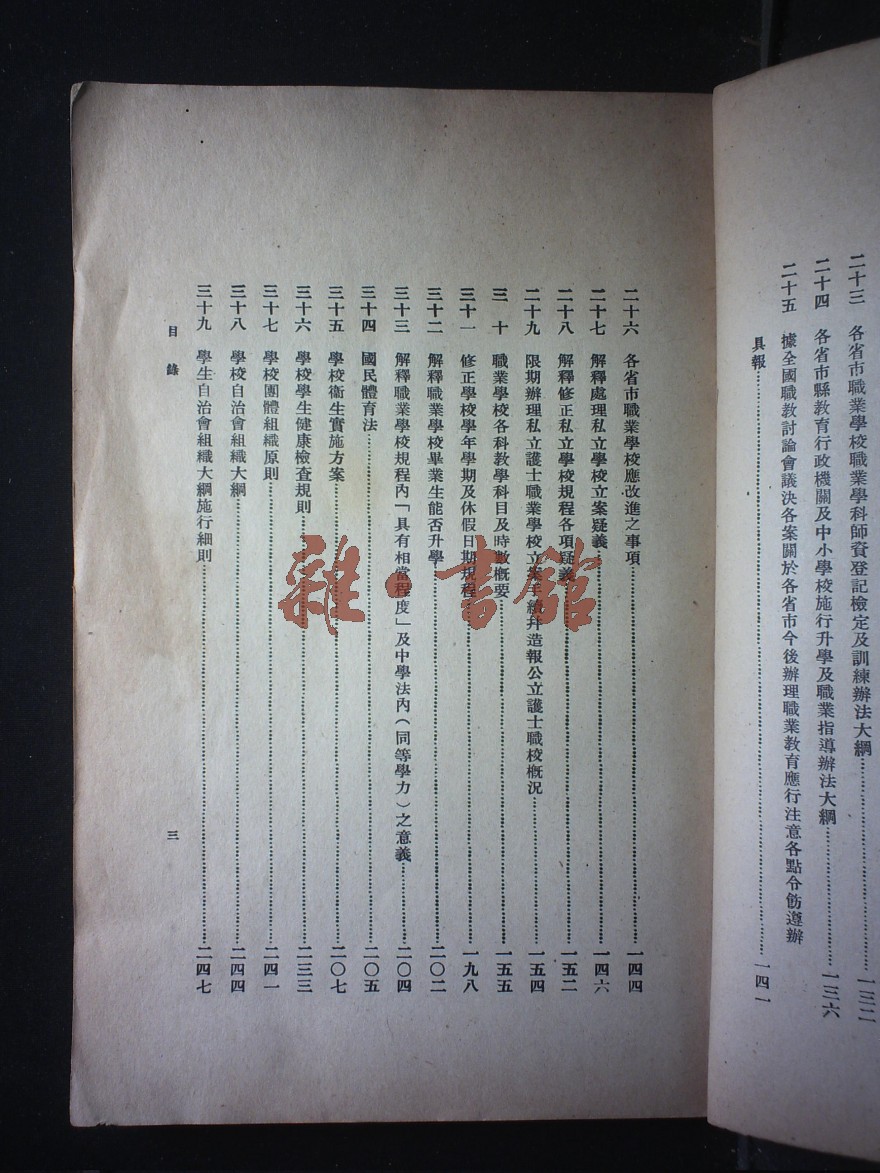 二十三　各省市職業學校職業學科師資登記檢定及訓練辦法大綱……一三二
二十四　各省市縣教育行政機關及中小學校施行升學及職業指導辦法大綱……一三六
二十五　據全國職教討論會議決各案關於各省市今後辦理職業教育應行注意各點令飭遵辦
具報……一四一
二十六　各省市職業學校應改進之事項……一四四
二十七　解釋處理私立學校立案疑義……一四六
二十八　解釋修正私立學校規程各項疑義……一五二
二十九　限期辦理私立護士職業學校立案手續幷造報公立護士職校概況……一五四
三　十　職業學校各科教學科目及時數概要……一五五
三十一　修正學校學年學期及休假日期規程……一九八
三十二　解釋職業學校畢業生能否升學……二〇二
三十三　解釋職業學校規程內「具有相當程度」及中學法內（同等學力）之意義……二〇四
三十四　國民體育法……二〇五
三十五　學校衞生實施方案……二〇七
三十六　學校學生健康檢查規則……二三三
三十七　學校團體組織原則……二四一
三十八　學校自治會組織大綱……二四四
三十九　學生自治會組織大綱施行細則……二四七
目錄
三
雜·書館